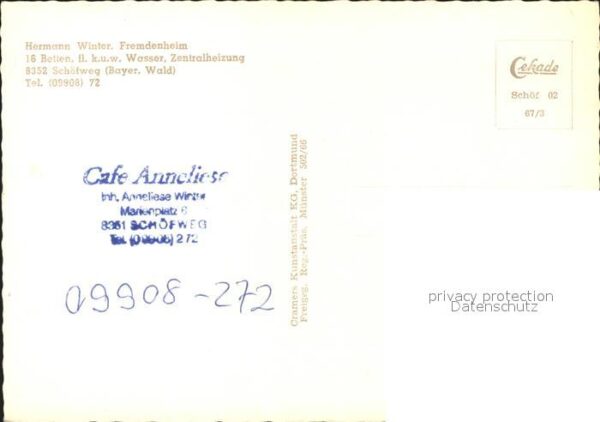 Hermann Winter, Fremdenheim
18 Betten, fl. k.u.w. Wasser, Zentralheizung
8352 Schöfweg (Bayer. Wald)
Tel. (09908) 72
Cekade
Schöf 02
67/3
Cafe Anneliese
Inh. Anneliese Winter
Marienplatz 6
8351 SCHÖFWEG
Tel. (09908) 272
09908-272
Cramers Kunstanstalt KG, Dortmund
Freigeg. Reg.-Präs. Münster 502/66
privacy protection
Datenschutz